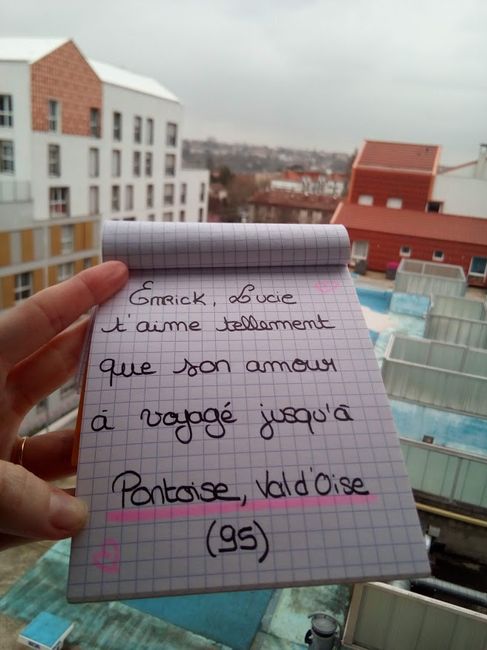 Emrick, Lucie
t'aime tellement
que son amour
à voyagé jusqu'à
Pontoise, Val d'Oise
(95)